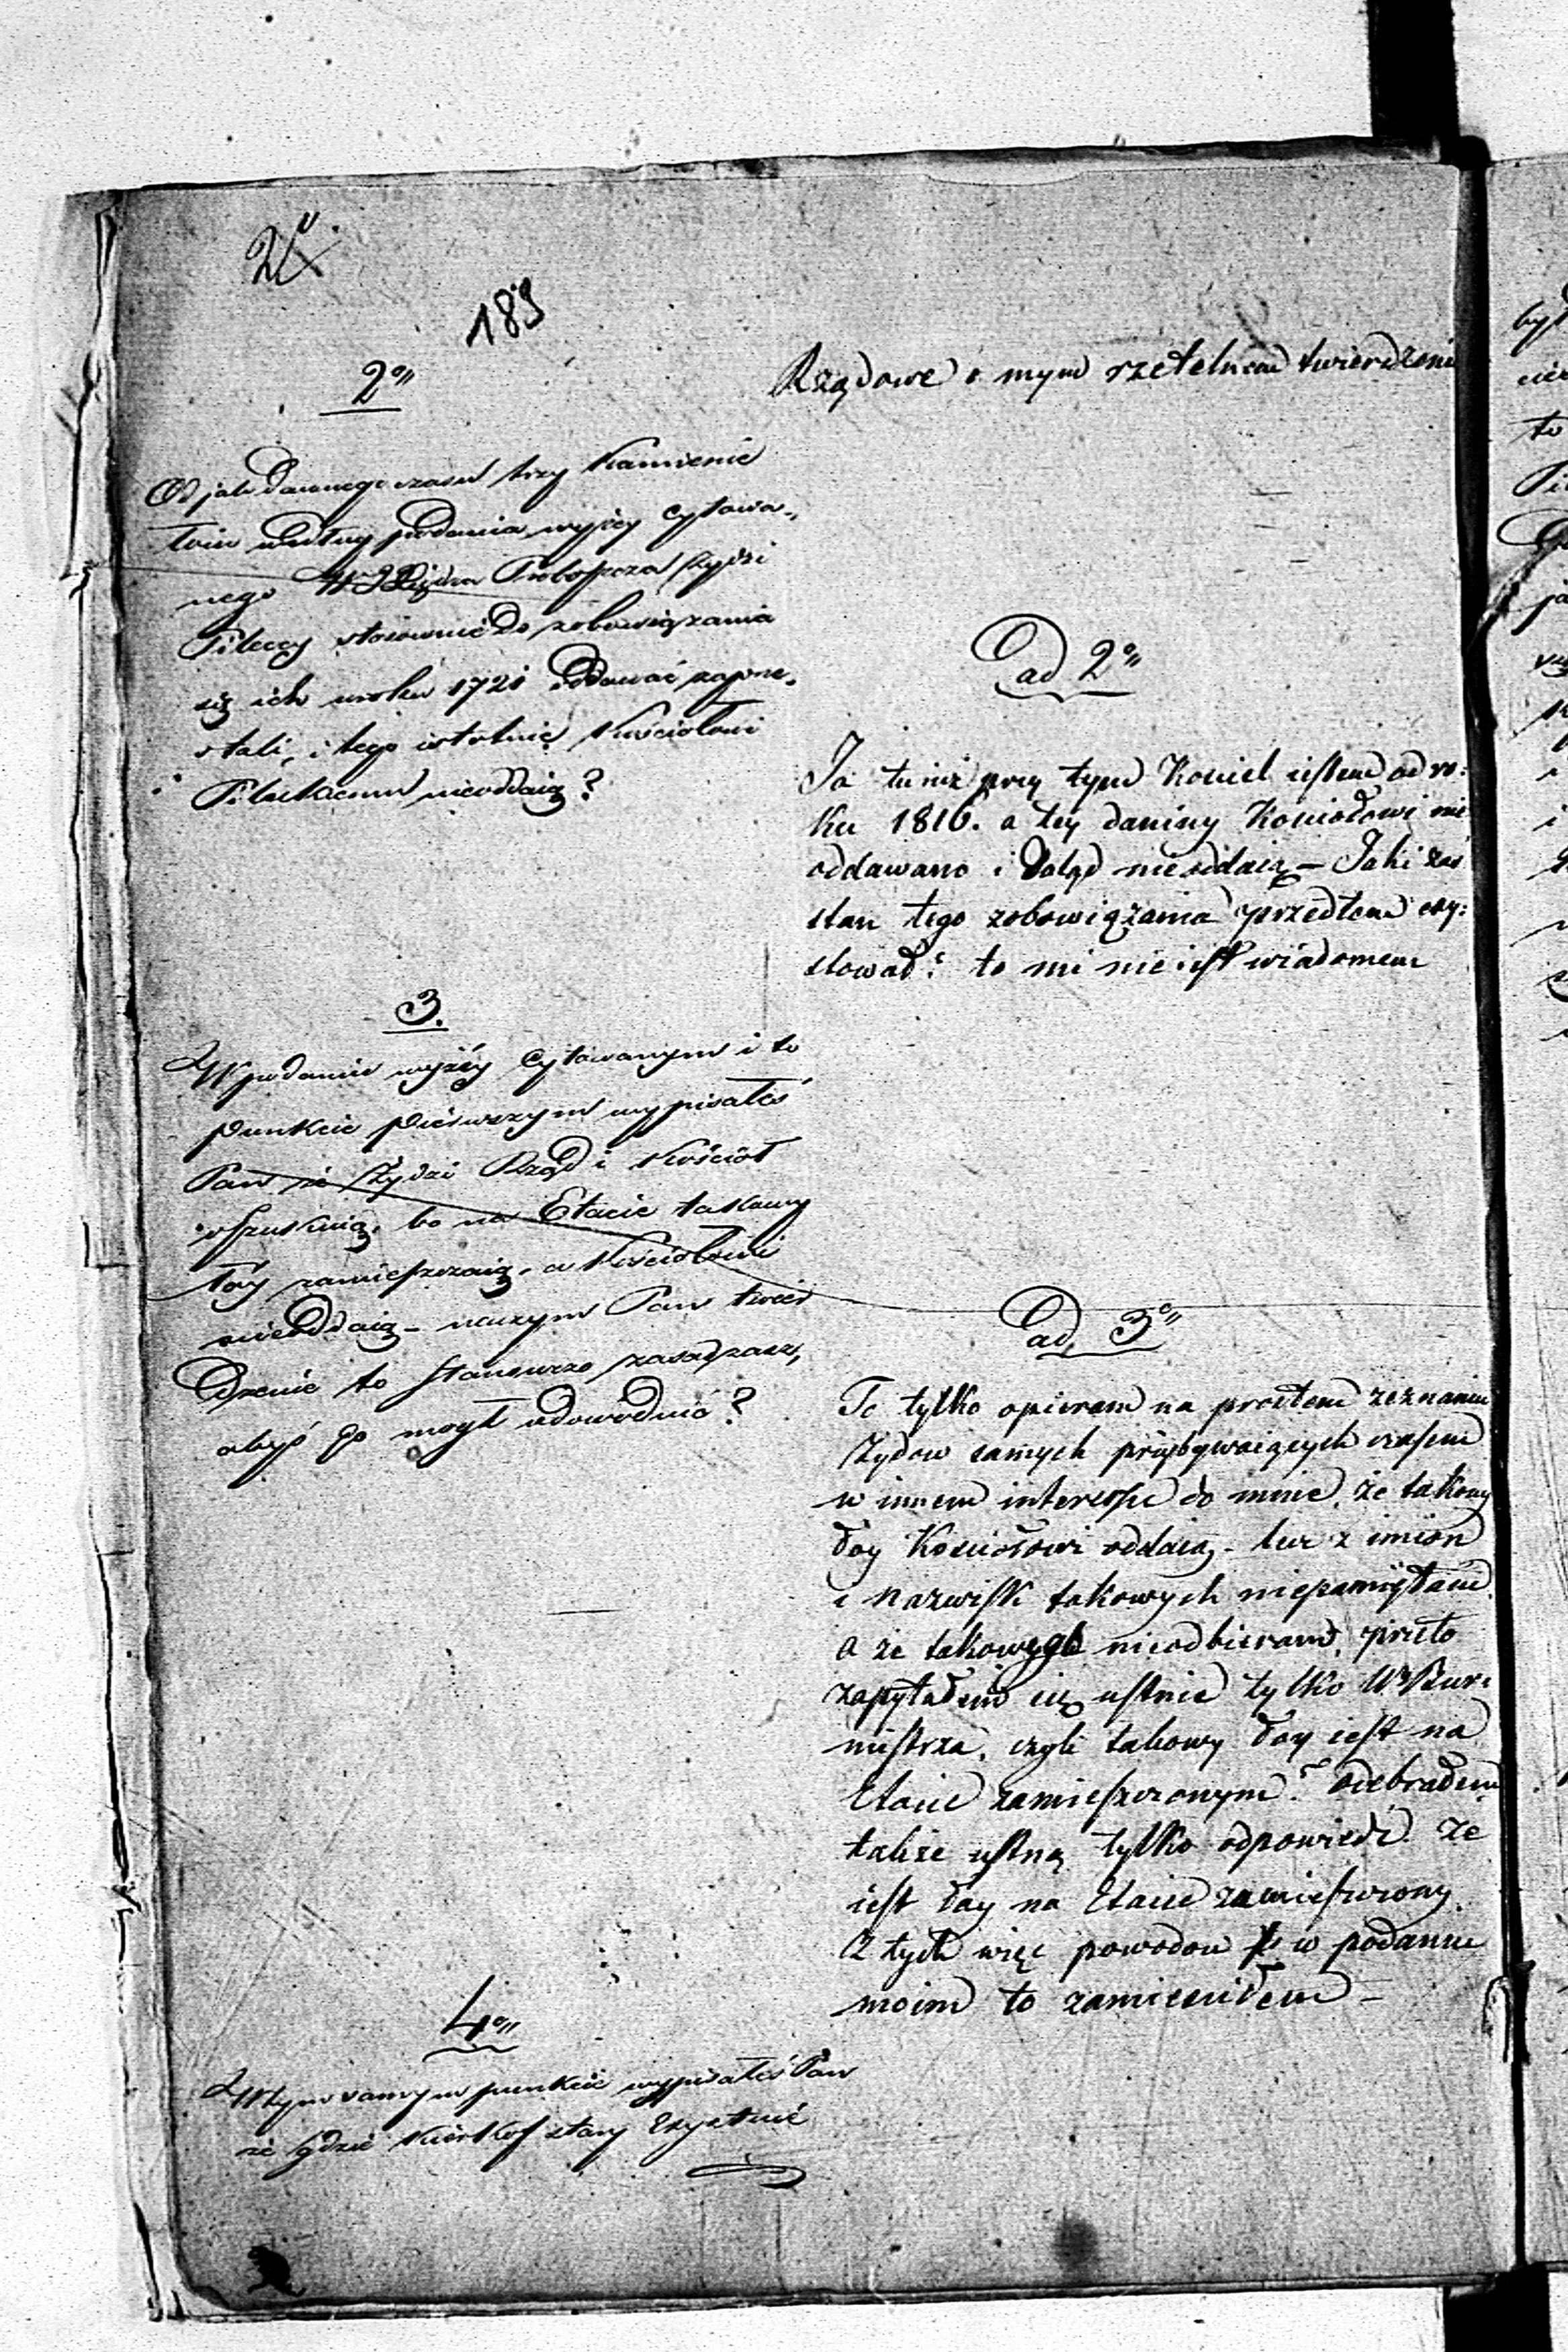 189
2o
Od jak dawnego czasu trzy Kamienie
Łoiu według podania wyżey cytowa-
nego Proboszcza Żydzi
Pileccy stosownie do zobowiązania
się ich w roku 1721 oddawać zaprze-
stali, i tego istotnie Kościołowi
Pileckiemu nieoddaią?
3.
W podaniu wyżéy Cytowanym i to
punkcie pierwszym wypisałeś
Pan że Żydzi Rząd i Kościół
oszukuią, bo na Etacie takowy
łóy zamieszczaią, a Kościołowi
nieoddaią – na czym Pan twier
dzenie to stanowczo zasadzasz,
abyś go mogł udowodnić?
4o
W tym samym punkcie wypisałeś Pan
że gdzie Kierkof stary Exystuie
Rządowe o mym rzetelnem twierdzeniu
ad 2o
Ja tu iuż przy tym Kościel iestem od ro:
ku 1816. a tey daniny Kościołowi nie
oddawano i dotąd nieoddaią – Jaki zaś
stan tego zobowiązania przedtem exy:
stował? to mi nie iest wiadomem
ad 3o
To tylko opieram na prostem zeznaniu
Żydow samych przybywaiących czasem
w innem interessie do mnie, że takowy
łoy Kościołowi oddaią – lecz z imion
i nazwisk takowych niepamiętam
a że takowego nieodbieram, przeto
zapytałem się ustnie tylko W Bur:
mistrza, czyli takowy łoy iest na
Etacie zamieszczonym? odebrałem
także ustną tylko odpowiedź że
iest łoy na Etacie zamieszczony
Z tych więc powodow w podaniu
moim to zamieniłem –